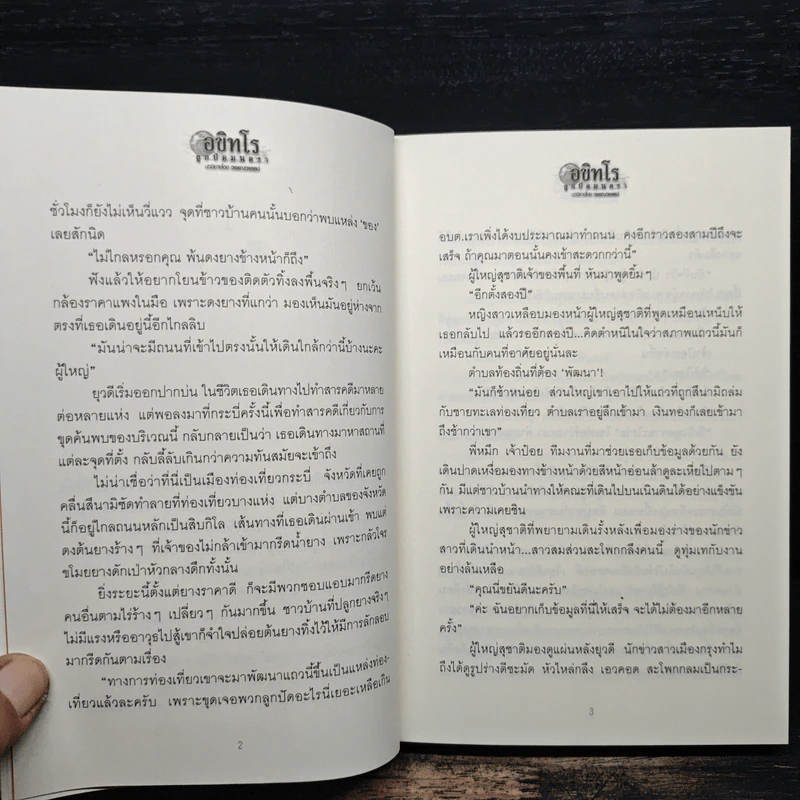 อขิทโร
ลูกปัดมนตรา
ชั่วโมงก็ยังไม่เห็นวี่แวว จุดที่ชาวบ้านคนนั้นบอกว่าพบแหล่ง ‘ของ’
เลยสักนิด
“ไม่ไกลหรอกคุณ พ้นดงยางข้างหน้าก็ถึง”
ฟังแล้วให้อยากโยนข้าวของติดตัวทิ้งลงพื้นจริงๆ ยกเว้น
กล้องราคาแพงในมือ เพราะดงยางที่แกว่า มองเห็นมันอยู่ห่างจาก
ตรงที่เธอเดินอยู่นี้อีกไกลลิบ
“มันน่าจะมีถนนที่เข้าไปตรงนั้นให้เดินใกล้กว่านี้บ้างนะคะ
ผู้ใหญ่”
ยุวดีเริ่มออกปากบ่น ในชีวิตเธอเดินทางไปทำสารคดีมาหลาย
ต่อหลายแห่ง แต่พอลงมาที่กระบี่ครั้งนี้เพื่อทำสารคดีเกี่ยวกับการ
ขุดค้นพบของบริเวณนี้ กลับกลายเป็นว่า เธอเดินทางมาหาสถานที่
แต่ละจุดที่ตั้ง กลับลี้ลับเกินกว่าความทันสมัยจะเข้าถึง
ไม่น่าเชื่อว่าที่นี่เป็นเมืองท่องเที่ยวกระบี่ จังหวัดที่เคยถูก
คลื่นสึนามิซัดทำลายที่ท่องเที่ยวบางแห่ง แต่บางตำบลของจังหวัด
นี้ก็อยู่ไกลถนนหลักเป็นสิบกิโล เส้นทางที่เธอเดินผ่านเข้า พบแต่
ดงต้นยางร้างๆ ที่เจ้าของไม่กล้าเข้ามากรีดน้ำยาง เพราะกลัวโจร
ขโมยยางดักเป่าหัวกลางดึกทั้งนั้น
ยิ่งระยะนี้ตั้งแต่ยางราคาดี ก็จะมีพวกชอบแอบมากรีดยาง
คนอื่นตามไร่ร้างๆ เปลี่ยวๆ กันมากขึ้น ชาวบ้านที่ปลูกยางจริงๆ
ไม่มีแรงหรืออาวุธไปสู้เขาก็จำใจปล่อยต้นยางทิ้งไว้ให้มีการลักลอบ
มากรีดกันตามเรื่อง
“ทางการท่องเที่ยวเขาจะมาพัฒนาแถวนี้ขึ้นเป็นแหล่งท่อง-
เที่ยวแล้วละครับ เพราะขุดเจอพวกลูกปัดอะไรนี่เยอะเหลือเกิน
2
อขิทโร
ลูกปัดมนตรา
อบต.เราเพิ่งได้งบประมาณมาทำถนน คงอีกราวสองสามปีถึงจะ
เสร็จ ถ้าคุณมาตอนนั้นคงเข้าสะดวกกว่านี้”
ผู้ใหญ่สุชาติเจ้าของพื้นที่ หันมาพูดยิ้มๆ
“อีกตั้งสองปี”
หญิงสาวเหลือบมองหน้าผู้ใหญ่สุชาติที่พูดเหมือนเหน็บให้
เธอกลับไป แล้วรออีกสองปี...คิดตำหนิในใจว่าสภาพแถวนี้มันก็
เหมือนกับคนที่อาศัยอยู่นั่นละ
ตำบลท้องถิ่นที่ต้อง ‘พัฒนา’!
“มันก็ช้าหน่อย ส่วนใหญ่เขาเอาไปให้แถวที่ถูกสึนามิถล่ม
กับชายทะเลท่องเที่ยว ตำบลเราอยู่ลึกเข้ามา เงินทองก็เลยเข้ามา
ถึงช้ากว่าเขา”
พี่หมึก เจ้าป๋อย ทีมงานที่มาช่วยเธอเก็บข้อมูลด้วยกัน ยัง
เดินปาดเหงื่อมองทางข้างหน้าด้วยสีหน้าอ่อนล้าดูละเหี่ยไปตามๆ
กัน มีแต่ชาวบ้านนำทางให้คณะที่เดินไปบนเนินดินได้อย่างแข็งขัน
เพราะความเคยชิน
ผู้ใหญ่สุชาติที่พยายามเดินรั้งหลังเพื่อมองร่างของนักข่าว
สาวที่เดินนำหน้า...สาวสมส่วนสะโพกกลึงคนนี้ ดูทุ่มเทกับงาน
อย่างล้นเหลือ
“คุณนี่ขยันดีนะครับ”
“ค่ะ ฉันอยากเก็บข้อมูลที่นี่ให้เสร็จ จะได้ไม่ต้องมาอีกหลาย
ครั้ง”
ผู้ใหญ่สุชาติมองดูแผ่นหลังยุวดี นักข่าวสาวเมืองกรุงทำไม
ถึงได้ดูรูปร่างดีชะมัด หัวไหล่กลึง เอวคอด สะโพกกลมเป็นกระ-
3